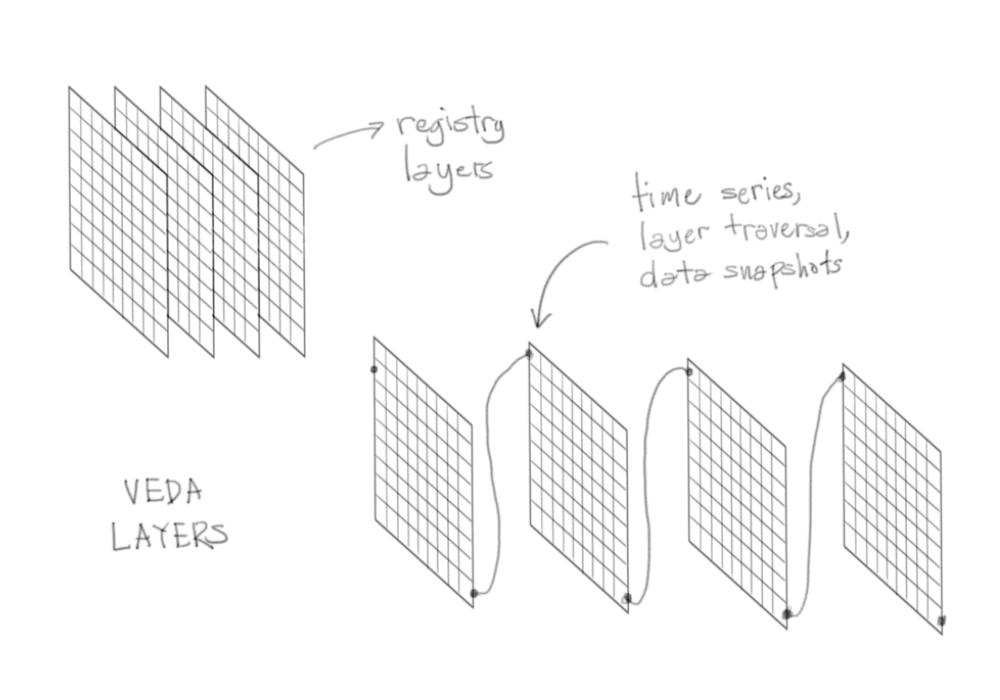 registry
layers
time series,
layer traversal,
data snapshots
VEDA
LAYERS